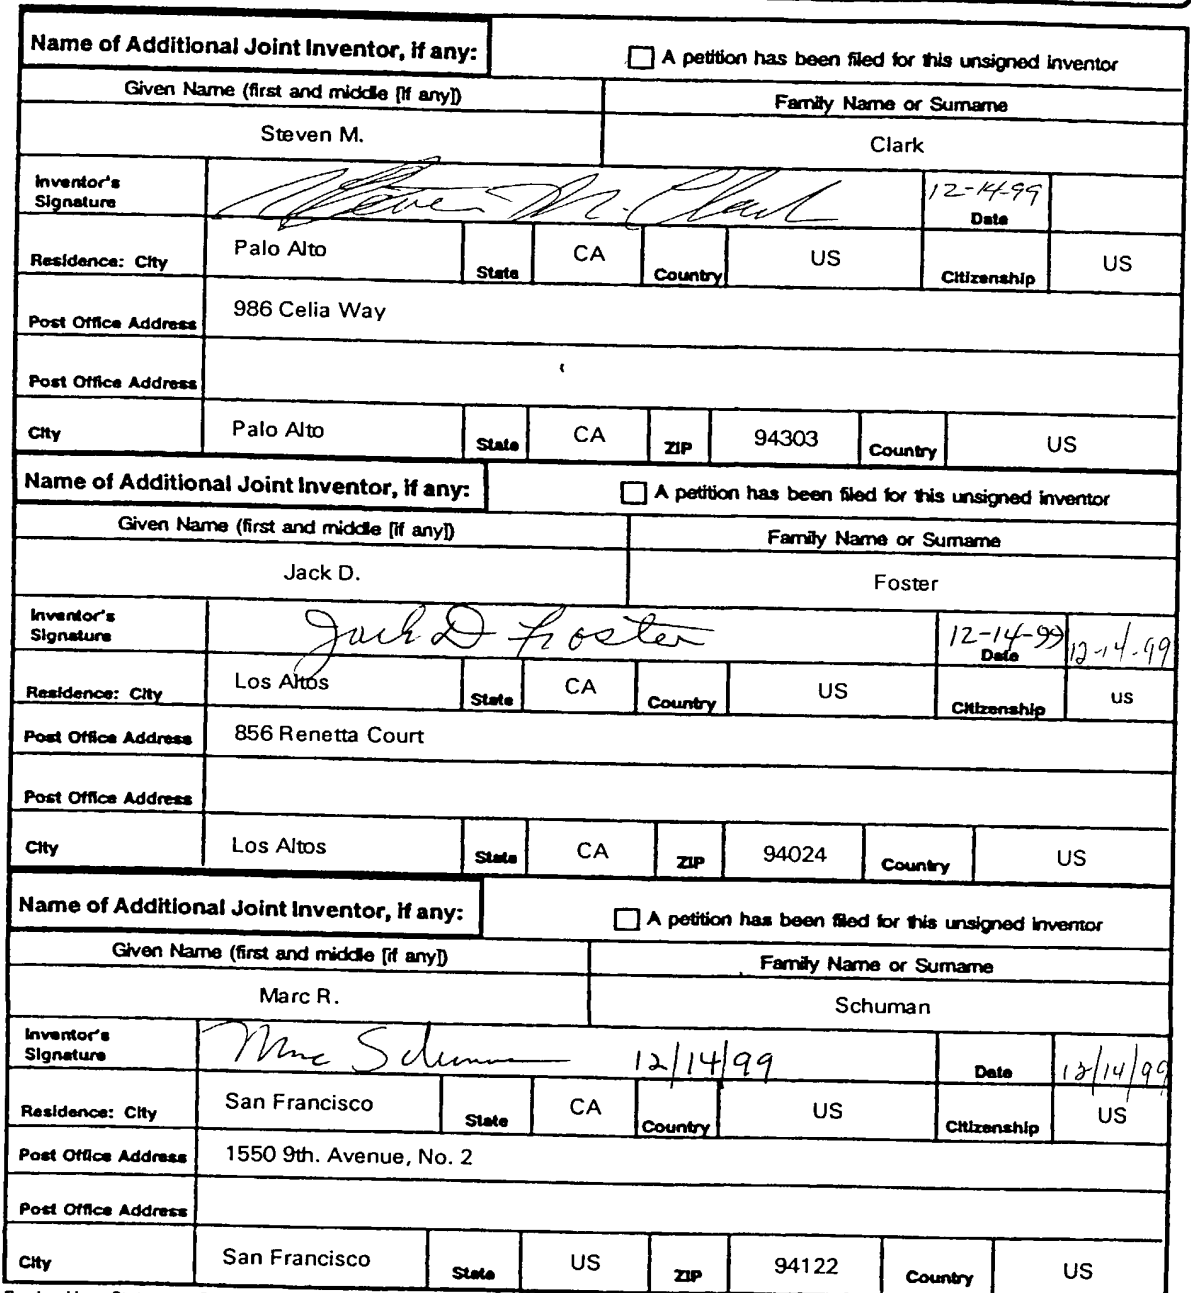 Name of Additional Joint Inventor, if any: A petition has been filed for this unsigned inventor
Given Name (first and middle [if any]) Family Name or Surname
Steven M. Clark
Inventor's Signature Steven M. Clark 12-14-99 Date
Residence: City Palo Alto State CA Country US Citizenship US
Post Office Address 986 Celia Way
Post Office Address
City Palo Alto State CA ZIP 94303 Country US
Name of Additional Joint Inventor, if any: A petition has been filed for this unsigned inventor
Given Name (first and middle [if any]) Family Name or Surname
Jack D. Foster
Inventor's Signature Jack D Foster 12-14-99 Date 12-14-99
Residence: City Los Altos State CA Country US Citizenship US
Post Office Address 856 Renetta Court
Post Office Address
City Los Altos State CA ZIP 94024 Country US
Name of Additional Joint Inventor, if any: A petition has been filed for this unsigned inventor
Given Name (first and middle [if any]) Family Name or Surname
Marc R. Schuman
Inventor's Signature Marc Schuman 12/14/99 Date 12/14/99
Residence: City San Francisco State CA Country US Citizenship US
Post Office Address 1550 9th. Avenue, No. 2
Post Office Address
City San Francisco State US ZIP 94122 Country US